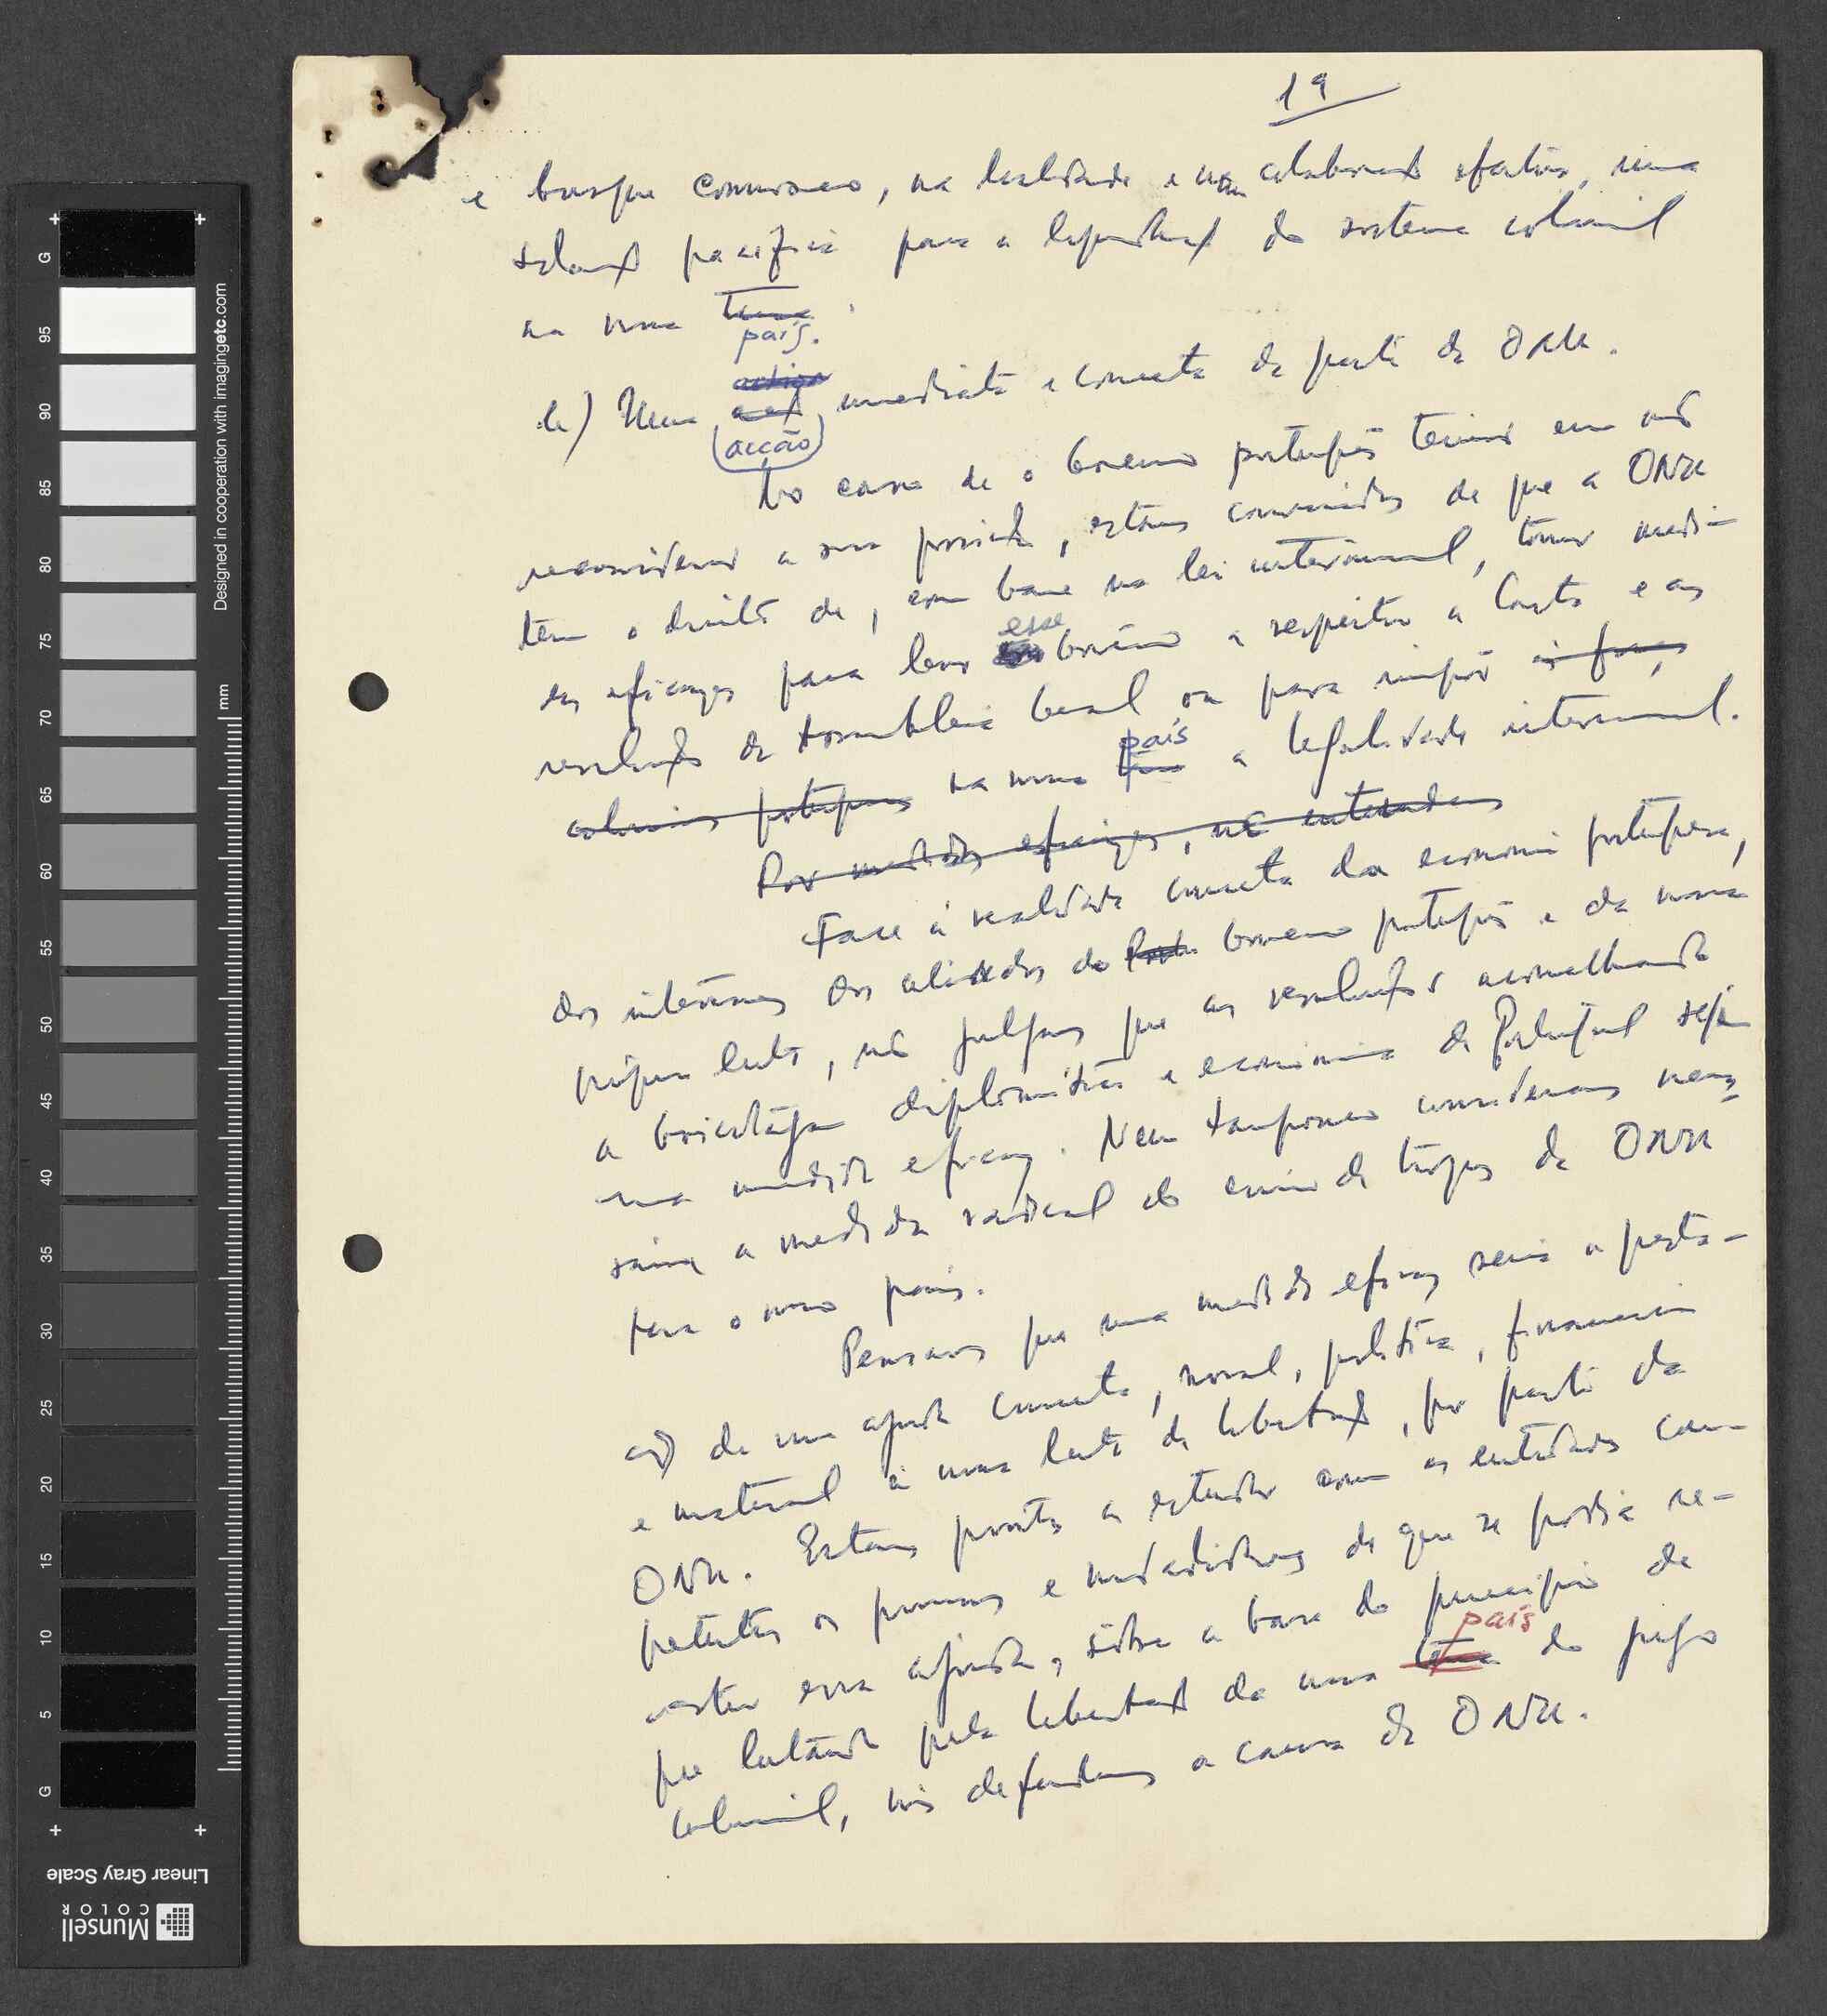 19
e busque connosco, na lealdade e numa colaboração efectiva, uma
solução pacífica para a liquidação do sistema colonial
na nossa terra.
país.
b) Uma acção imediata e concreta da parte da ONU.
(acção)
No caso de o Governo português teimar em não
reconsiderar a sua posição, estamos convencidos de que a ONU
tem o direito de, com base na lei internacional, tomar medi-
das eficazes para levar esse Governo a respeitar a Carta e as
resoluções da Assembleia Geral ou para impôr às forças
país
colonias portuguesas na nossa terra a legalidade internacional.
Por medidas eficazes, não entendemos
Face à realidade concreta da economia portuguesa,
dos interesses dos aliados do Governo português e da nossa
própria luta, não julgamos que as resoluções aconselhando
a boicotagem diplomática e económica de Portugal sejam
uma medida eficaz. Nem tampouco consideramos neces-
sária a medida radical do envio de tropas da ONU
para o nosso país.
Pensamos que uma medida eficaz seria a presta-
ção de uma ajuda concreta, moral, política, financeira
e material à nossa luta de libertação, por parte da
ONU. Estamos prontos a estudar com as entidades com-
petentes os processos e modalidades de que se podia re-
vestir essa ajuda, sôbre a base do princípio de
país
que lutando pela libertação da nossa terra do jugo
colonial, nós defendemos a causa da ONU.
Designed in cooperation with imagingetc.com
mm
G 95 90 85 80 75 70 65 60 55 50 45 40 35 30 25 20 15 10 5 G
Linear Gray Scale
Munsell
COLOR